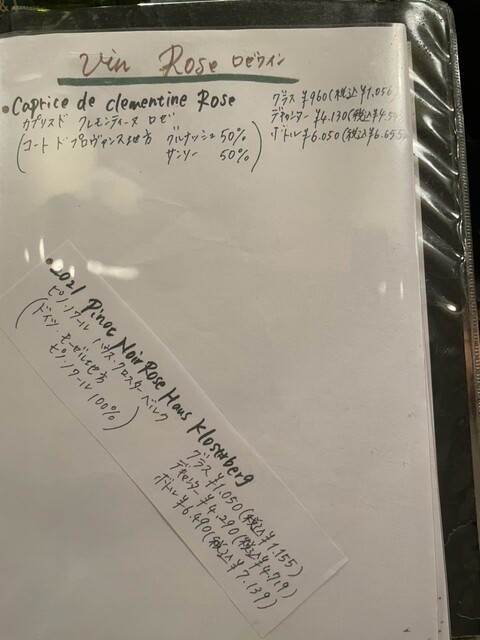 Vin Rose ロゼワイン
• Caprice de clementine Rose
カプリス ド クレモンティーヌ ロゼ
(コート ド プロヴァンス地方 グルナッシュ 50%
サンソー 50%)
グラス ¥960(税込¥1,056
デキャンター ¥4.130(税込¥4.54
ボトル ¥6.050(税込¥6.655
• 2021 Pinot Noir Rose Haus Klosterberg
ピノ・ノワール ハウス・クロスターベルク
(ドイツ・モーゼル地方
ピノ・ノワール 100%)
グラス ¥1.050(税込¥1.155)
デキャンター ¥4.290(税込¥4.719)
ボトル ¥6.490(税込¥7.139)